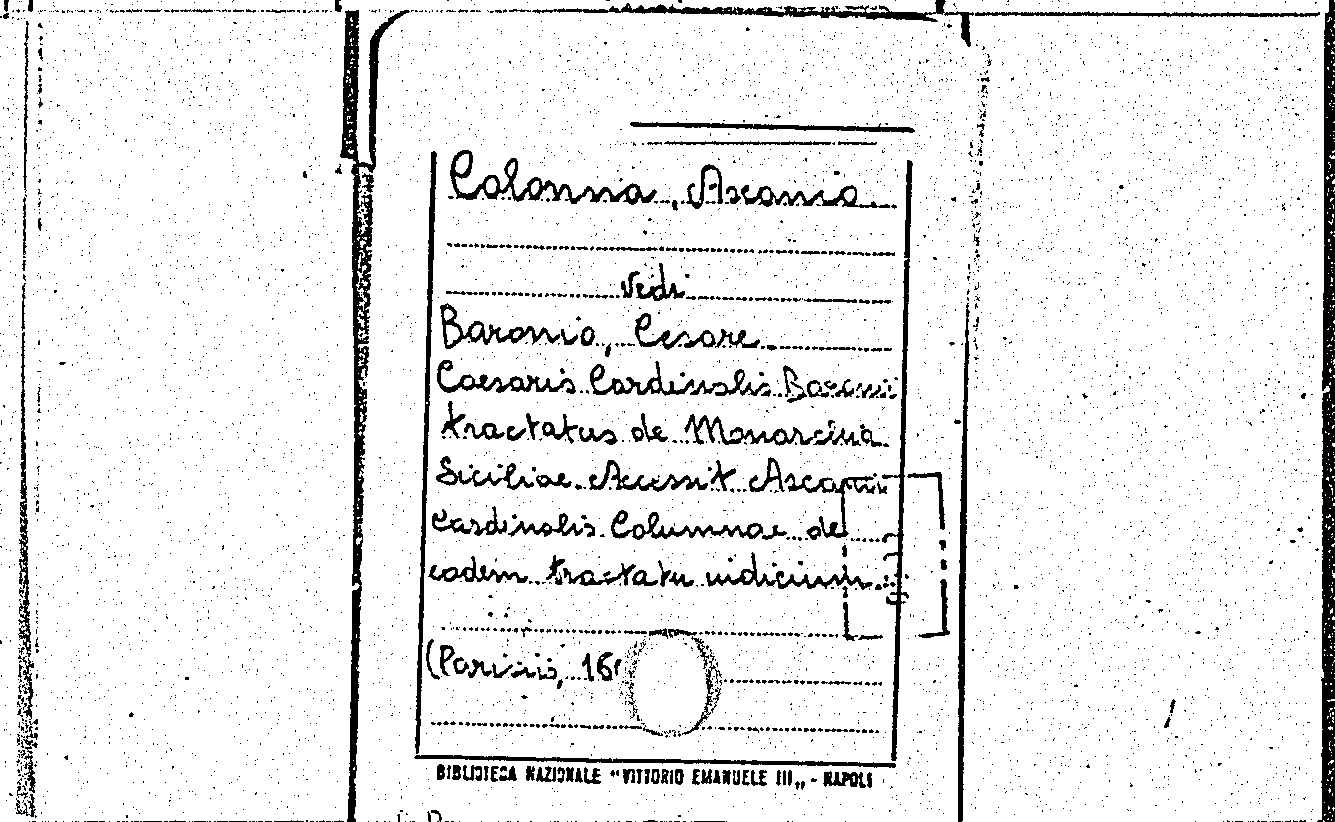 Colonna, Ascanio.
vedi
Baronio, Cesare.
Caesaris Cardinalis Baronii
tractatus de Monarchia
Siciliae. Accessit Ascanii
Cardinalis Columnae de
eodem tractatu iudicium.
(Parisiis, 16
BIBLIOTECA NAZIONALE "VITTORIO EMANUELE III„ - NAPOLI